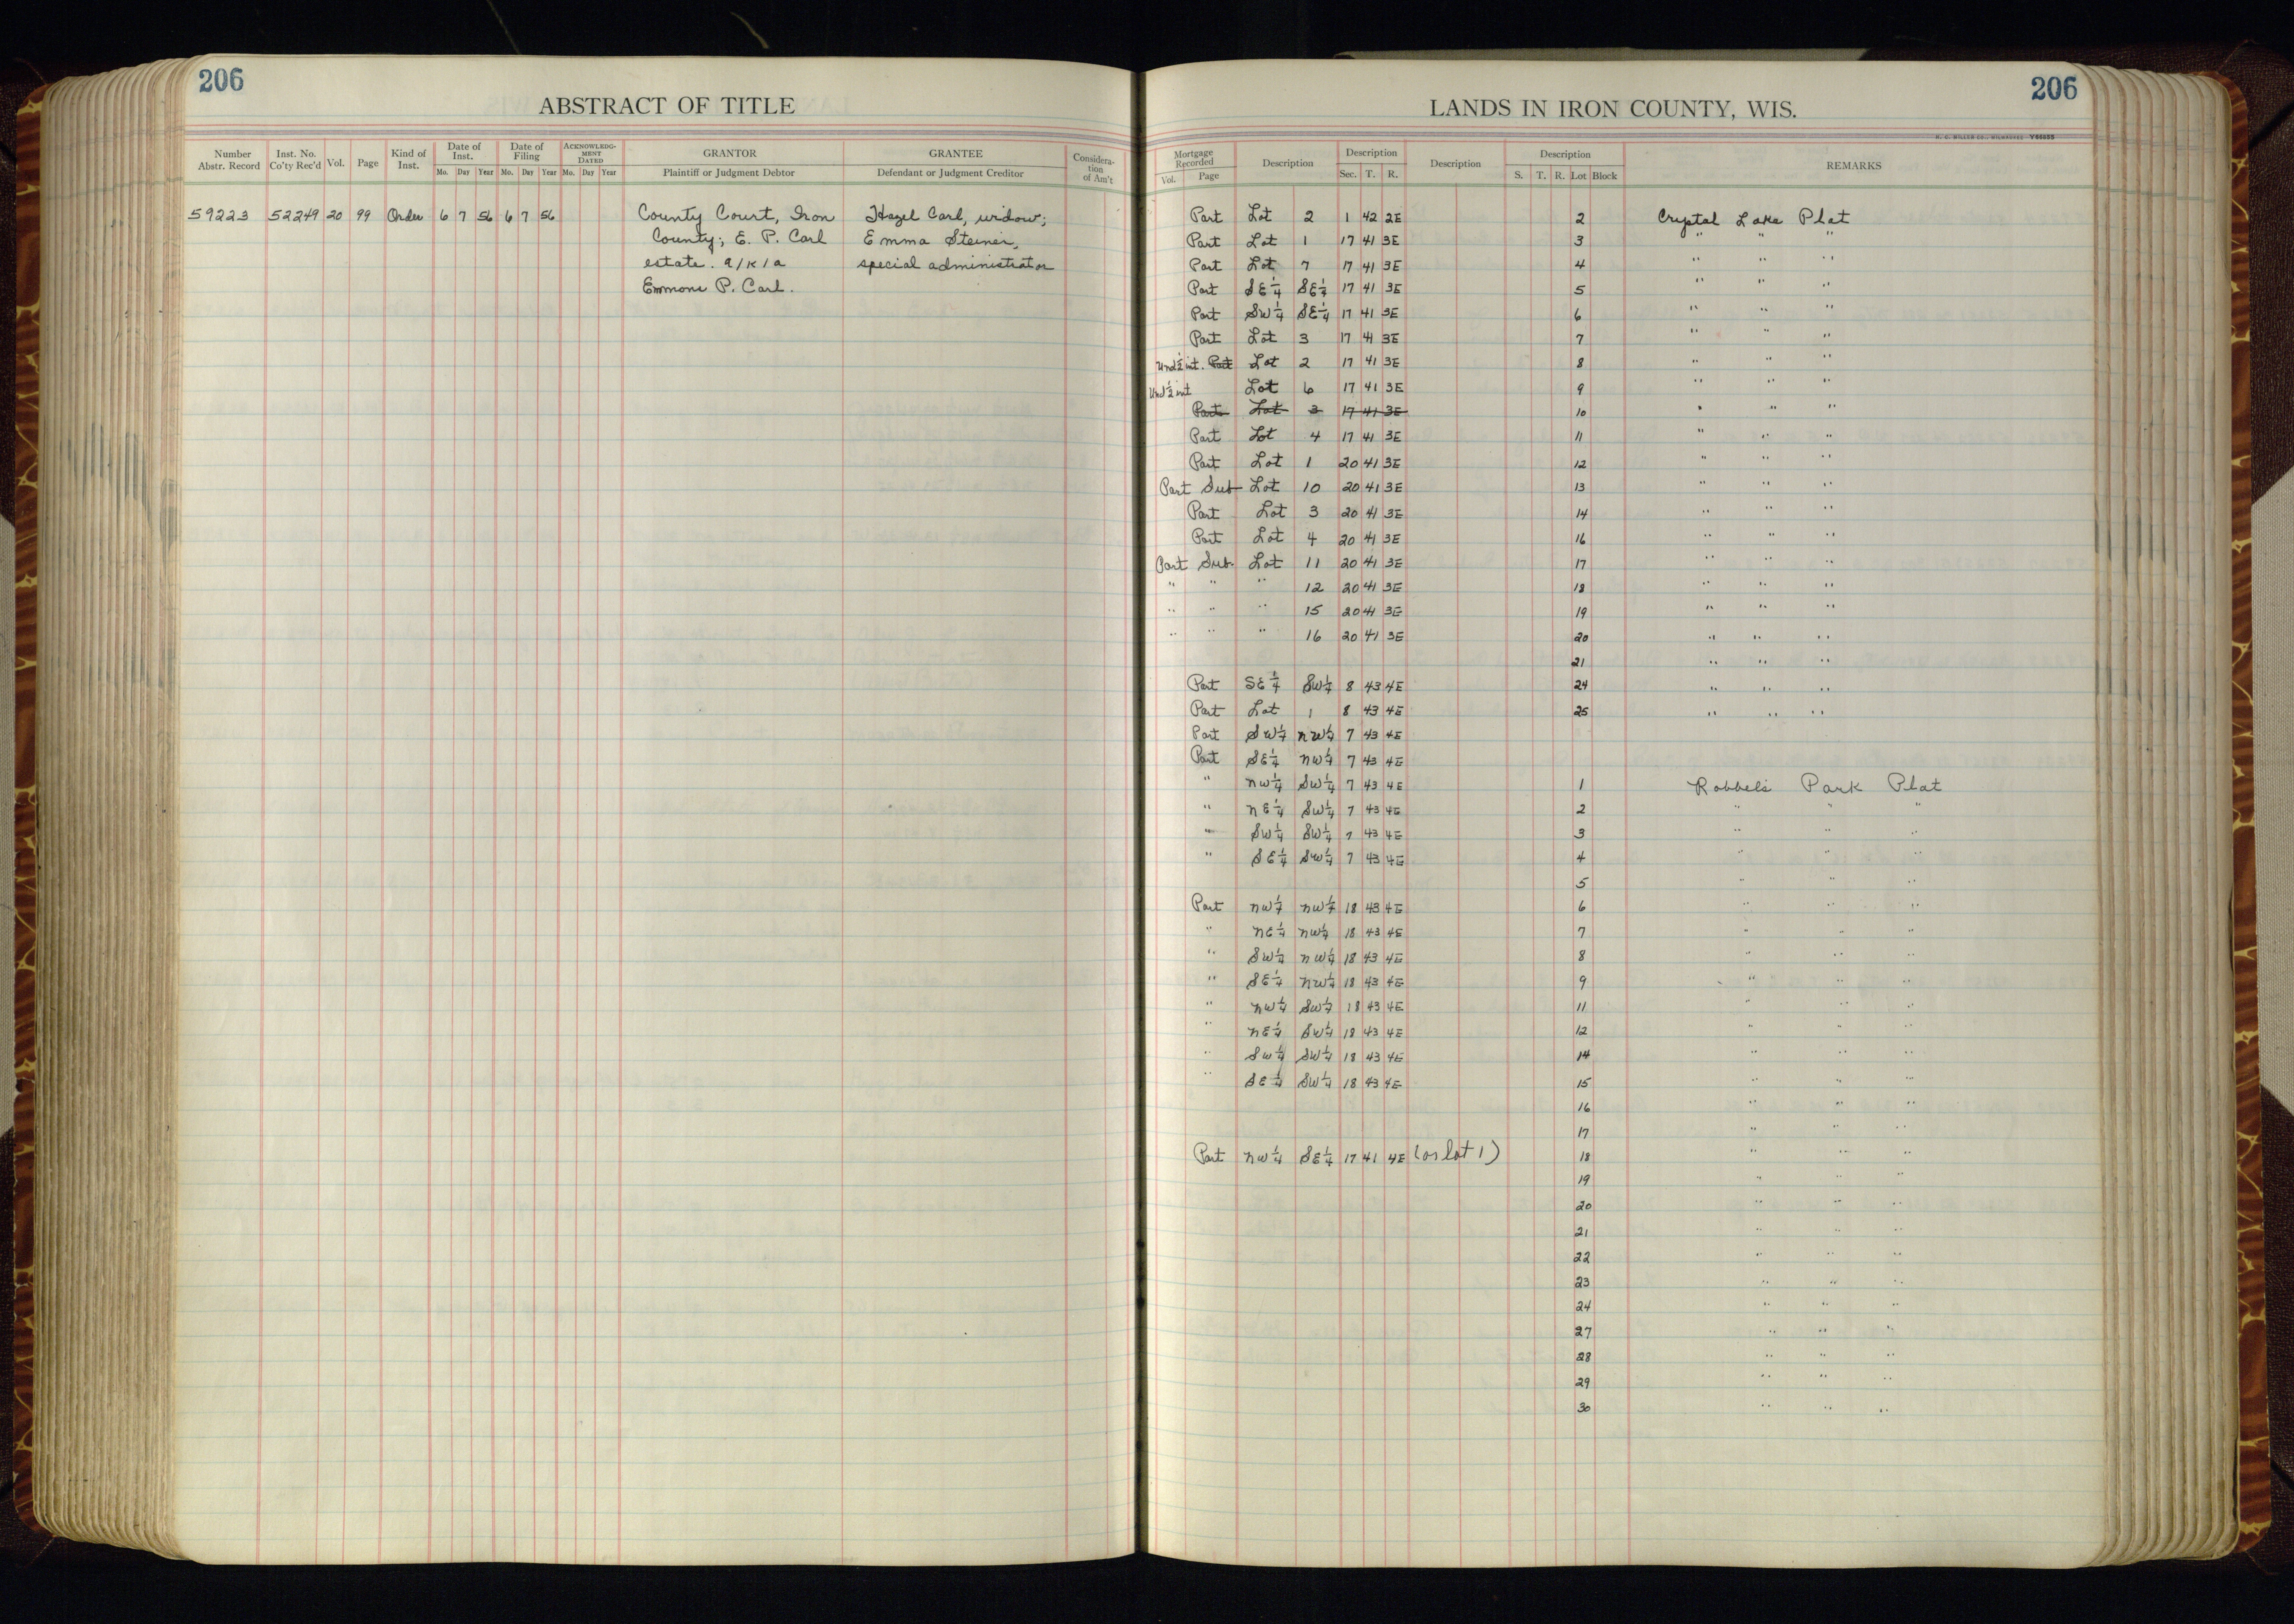 206
ABSTRACT OF TITLE
Number Abstr. Record | Inst. No. Co'ty Rec'd | Vol. | Page | Kind of Inst. | Date of Inst. Mo. Day Year | Date of Filing Mo. Day Year | ACKNOWLEDGMENT DATED Mo. Day Year | GRANTOR Plaintiff or Judgment Debtor | GRANTEE Defendant or Judgment Creditor | Consideration of Am't
59223 52249 20 99 Order 6 7 56 6 7 56 County Court, Iron Hazel Carl, widow;
County; E. P. Carl Emma Steiner,
estate. a/k/a special administrator
Emmons P. Carl.
206
LANDS IN IRON COUNTY, WIS.
H. C. MILLER CO., MILWAUKEE Y66655
Mortgage Recorded Vol. Page | Description | Description Sec. T. R. | Description | Description S. T. R. Lot Block | REMARKS
Part Lot 2 1 42 2E 2 Crystal Lake Plat
Part Lot 1 17 41 3E 3 " " "
Part Lot 7 17 41 3E 4 " " "
Part SE¼ SE¼ 17 41 3E 5 " " "
Part SW¼ SE¼ 17 41 3E 6 " " "
Part Lot 3 17 41 3E 7 " " "
Und ½ int. Part Lot 2 17 41 3E 8 " " "
Und ½ int Lot 6 17 41 3E 9 " " "
Part Lot 3 17 41 3E 10 " " "
Part Lot 4 17 41 3E 11 " " "
Part Lot 1 20 41 3E 12 " " "
Part Sub Lot 10 20 41 3E 13 " " "
Part Lot 3 20 41 3E 14 " " "
Part Lot 4 20 41 3E 16 " " "
Part Sub. Lot 11 20 41 3E 17 " " "
" " " 12 20 41 3E 18 " " "
" " " 15 20 41 3E 19 " " "
" " " 16 20 41 3E 20 " " "
21 " " "
Part SE¼ SW¼ 8 43 4E 24 " " "
Part Lot 1 8 43 4E 25 " " "
Part SW¼ NW¼ 7 43 4E
Part SE¼ NW¼ 7 43 4E
" NW¼ SW¼ 7 43 4E 1 Robbels Park Plat
" NE¼ SW¼ 7 43 4E 2 " " "
" SW¼ SW¼ 7 43 4E 3 " " "
" SE¼ SW¼ 7 43 4E 4 " " "
5 " " "
Part NW¼ NW¼ 18 43 4E 6 " " "
" NE¼ NW¼ 18 43 4E 7 " " "
" SW¼ NW¼ 18 43 4E 8 " " "
" SE¼ NW¼ 18 43 4E 9 " " "
" NW¼ SW¼ 18 43 4E 11 " " "
" NE¼ SW¼ 18 43 4E 12 " " "
" SW¼ SW¼ 18 43 4E 14 " " "
" SE¼ SW¼ 18 43 4E 15 " " "
16 " " "
17 " " "
Part NW¼ SE¼ 17 41 4E (or lot 1) 18 " " "
19 " " "
20 " " "
21 " " "
22 " " "
23 " " "
24 " " "
27 " " "
28 " " "
29 " " "
30 " " "